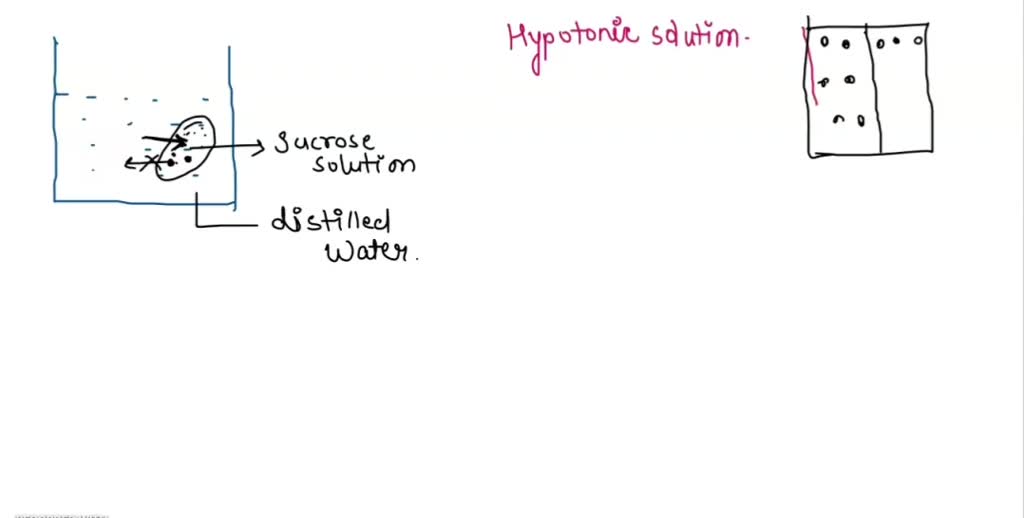 Hypotonic solution.
Sucrose
solution
distilled
Water.